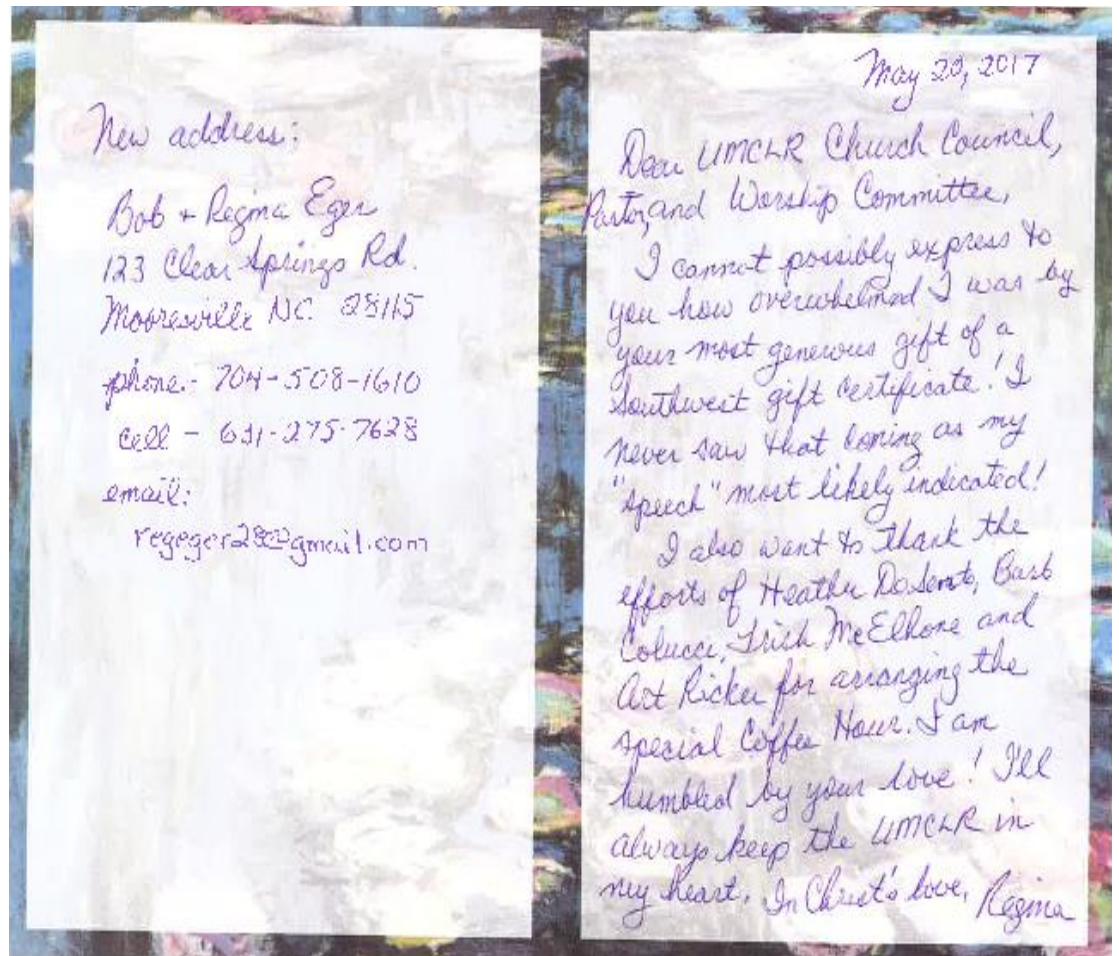 New address:
Bob + Regina Eger
123 Clear Springs Rd.
Mooresville NC. 28115
phone - 704-508-1610
cell - 631-275-7628
email:
regeger28@gmail.com
May 20, 2017
Dear UMCLR Church Council,
Pastor, and Worship Committee,
I cannot possibly express to
you how overwhelmed I was by
your most generous gift of a
Southwest gift certificate! I
never saw that coming as my
"speech" most likely indicated!
I also want to thank the
efforts of Heather Barb
Colucci, Trish McElhone and
Art Ricker for arranging the
special Coffee Hour. I am
humbled by your love! I'll
always keep the UMCLR in
my heart. In Christ's love, Regina